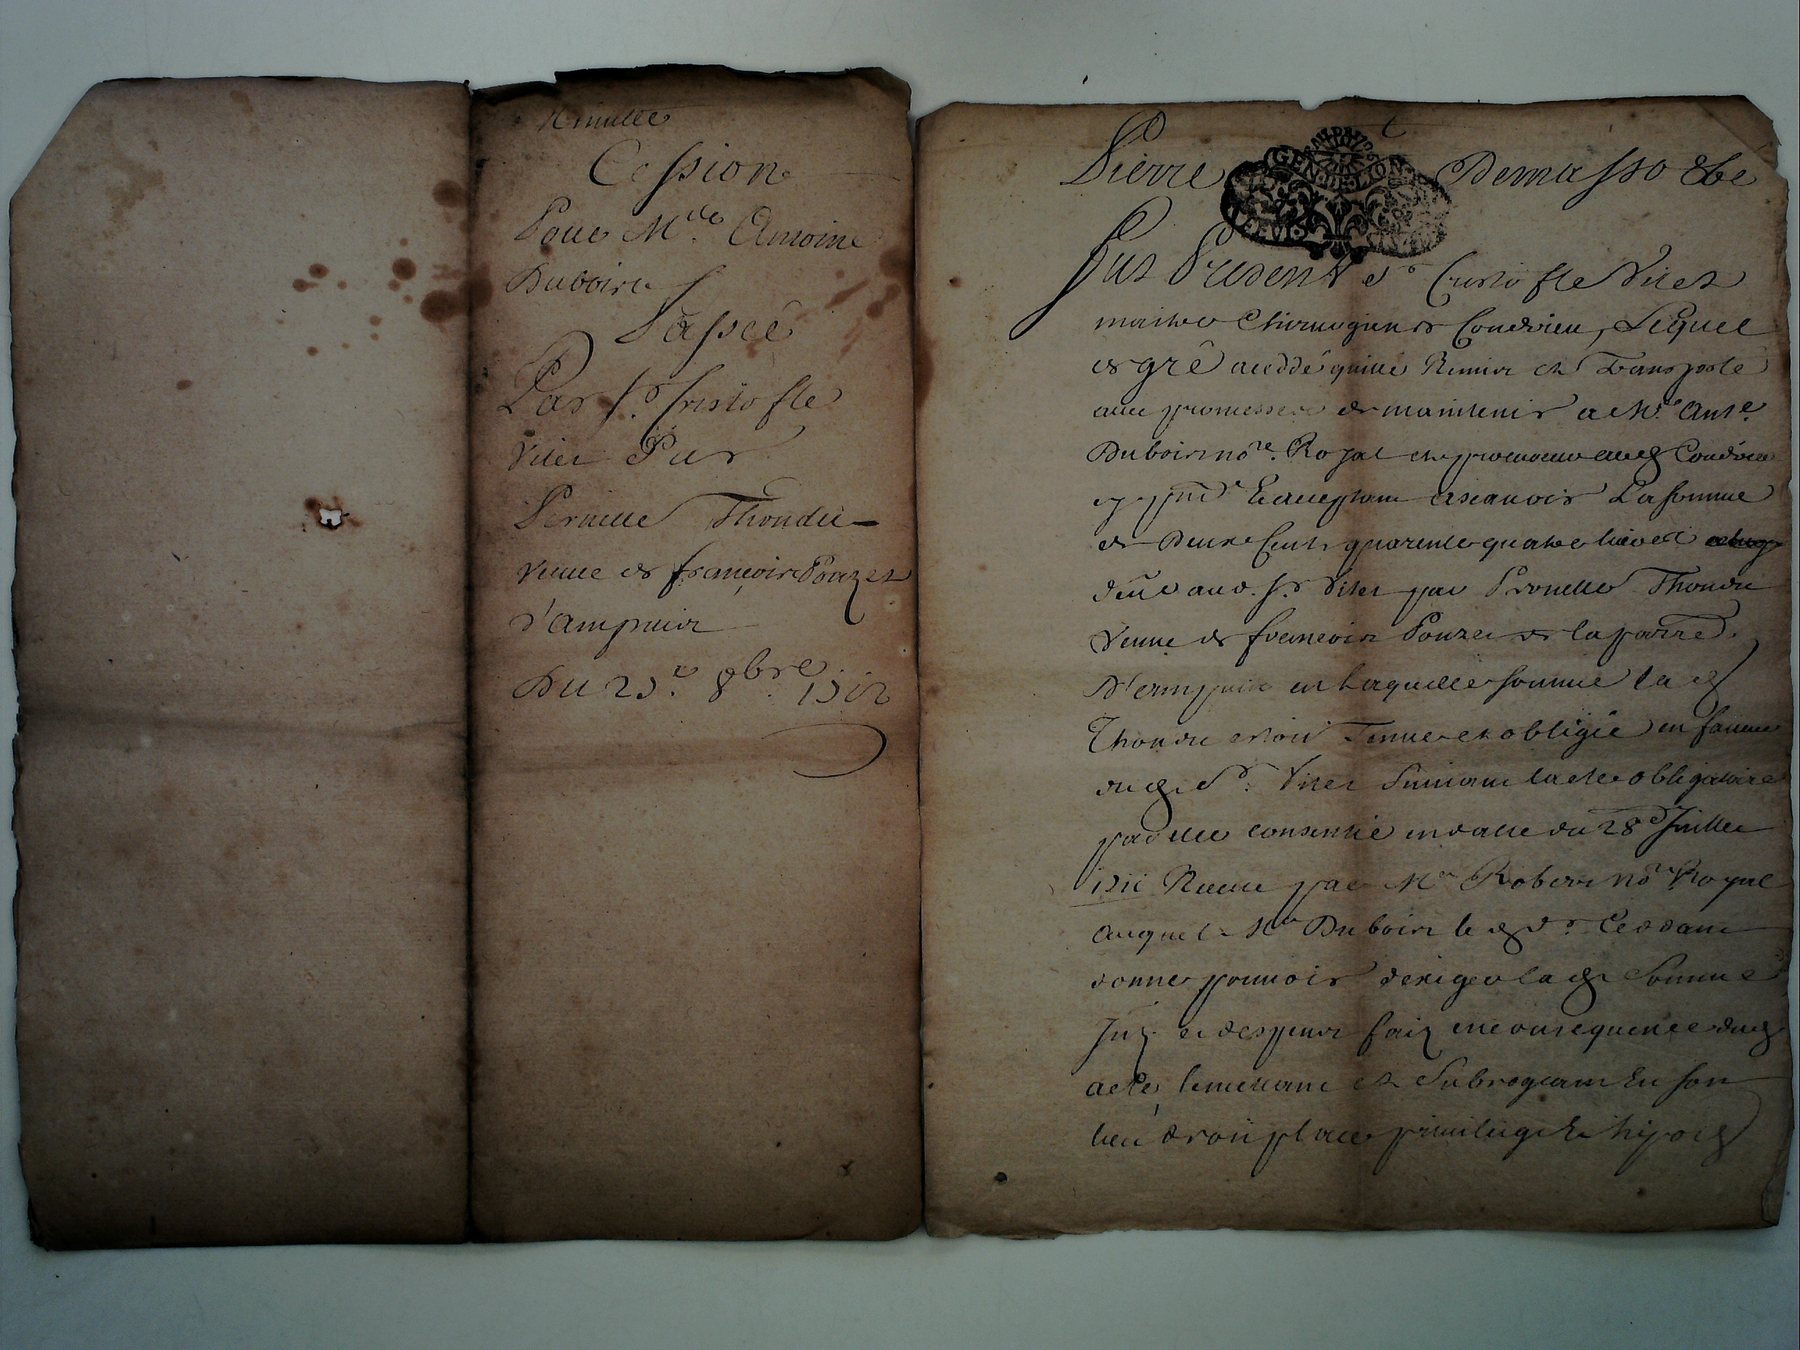 Minutte
Cession
Pour Me Antoine
Duboin
Passée
Par Sr. Cristofle
Vitet Sur
Pernette Thondu
veuve de francois Pouzet
d'ampuis
Du 25e 8bre 1712
Pierre Demasso &be
GEN DE LION
Fut Present Sr Cristofle Vitet
maitre Chirurgien de Condrieu, Lequel
de gré a ceddé quitté Remis et Transporté
avec promesse de maintenir a Me Antne.
Duboin nore. Royal et procureur aud Condrieu
cy pnt Et acceptant ascavoir La somme
de Deux Cents quarente quatre livres
deüe aud. Sr Vitet par Pernette Thondu
veuve de francois Pouzet de la parre
D'ampuis en Laquelle somme lad
Thondu estoit Tenue et obligée en faveur
dud Sr. Vitet Suivant lacte obligatoire
par elle consentie en datte du 28e Juillet
1711 Receu par Me Robert nore Royal
auquel Me Duboin led Sr. Ceddant
donne pouvoir dexiger lad Somme
et despens faits en consequence dud
acte, le mettant et Subrogeant En son
lieu droit place privilege Et hipoteq